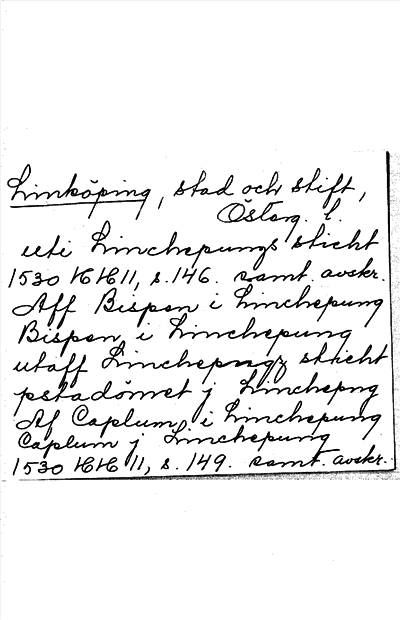 Linköping, stad och stift,
Österg. l.
uti Linchepungs sticht
1530 HH 11, s. 146. samt. avskr.
Aff Bispen i Linchepung
Bispen i Linchepung
utaff Linchepngz sticht
pstadömet j Linchepng
Af Caplum i Linchepung
Caplum j Linchepung
1530 HH 11, s. 149. samt. avskr.